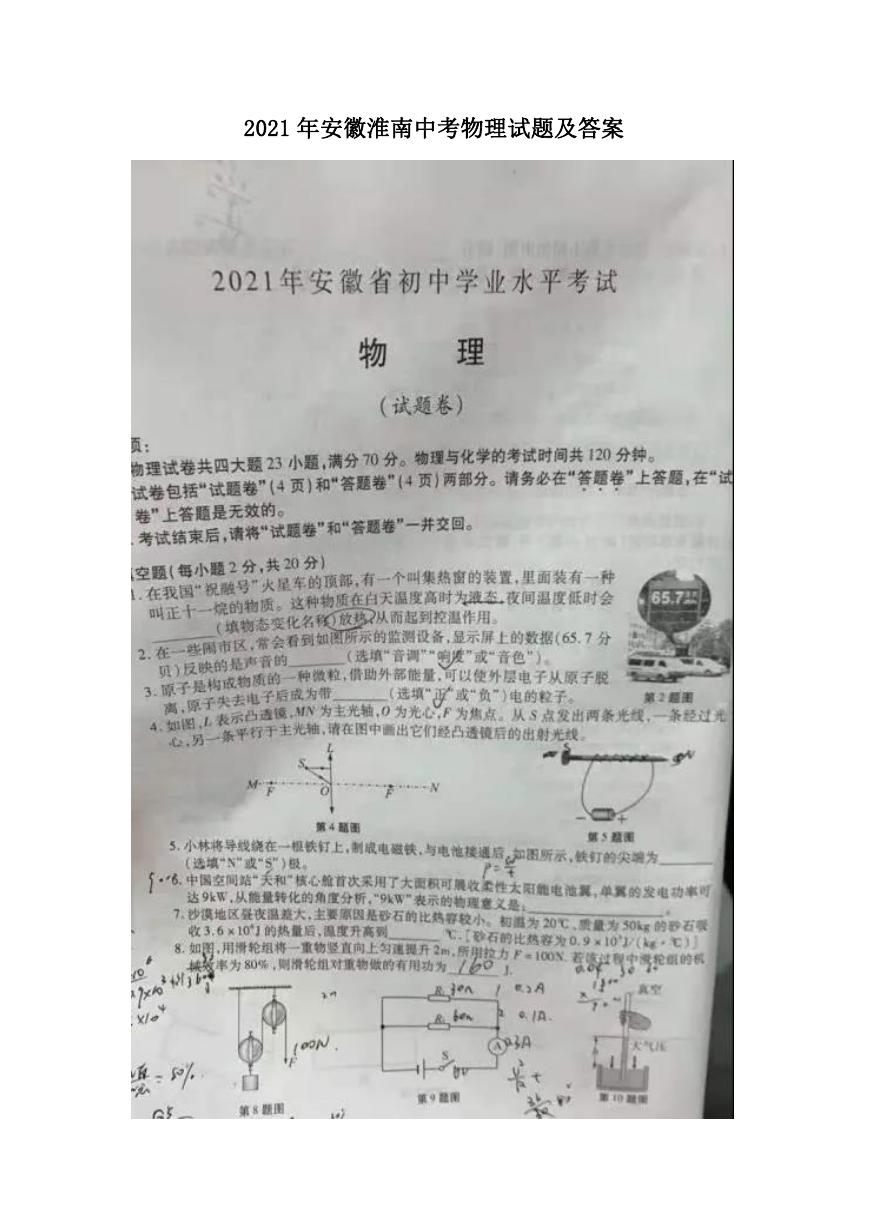 2021 年安徽淮南中考物理试题及答案
2021年安徽省初中学业水平考试
物 理
(试题卷)
页:
物理试卷共四大题 23 小题,满分 70 分。物理与化学的考试时间共 120 分钟。
试卷包括“试题卷”(4 页)和“答题卷”(4 页)两部分。请务必在“答题卷”上答题,在“试
卷”上答题是无效的。
.考试结束后,请将“试题卷”和“答题卷”一并交回。
空题(每小题 2 分,共 20 分)
1.在我国“祝融号”火星车的顶部,有一个叫集热窗的装置,里面装有一种
叫正十一烷的物质。这种物质在白天温度高时为液态,夜间温度低时会
______(填物态变化名称)放热,从而起到控温作用。
65.7
2.在一些闹市区,常会看到如图所示的监测设备,显示屏上的数据(65.7 分
贝)反映的是声音的______(选填“音调”“响度”或“音色”)。
3.原子是构成物质的一种微粒,借助外部能量,可以使外层电子从原子脱
离,原子失去电子后成为带______(选填“正”或“负”)电的粒子。
第 2 题图
4.如图,L 表示凸透镜,MN 为主光轴,O 为光心,F 为焦点。从 S 点发出两条光线,一条经过光
心,另一条平行于主光轴,请在图中画出它们经凸透镜后的出射光线。
L
S
M F O F N
S N
- +
第 4 题图
第 5 题图
5.小林将导线绕在一根铁钉上,制成电磁铁,与电池接通后,如图所示,铁钉的尖端为______
(选填“N”或“S”)极。
6.中国空间站“天和”核心舱首次采用了大面积可展收柔性太阳能电池翼,单翼的发电功率可
达 9kW,从能量转化的角度分析,“9kW”表示的物理意义是:______。
7.沙漠地区昼夜温差大,主要原因是砂石的比热容较小。初温为 20℃,质量为 50kg 的砂石吸
收 3.6×10⁵J 的热量后,温度升高到______℃。[砂石的比热容为 0.9×10³J/(kg·℃)]
8.如图,用滑轮组将一重物竖直向上匀速提升 2m,所用拉力 F=100N。若该过程中滑轮组的机
械效率为 80%,则滑轮组对重物做的有用功为 160 J.
R₁ 30Ω 1 0.2A
R₂ 60Ω 2 0.1A.
A 0.3A
S
6V
100N.
F
真空
大气压
h
= 80%
第 8 题图
第 9 题图
第 10 题图